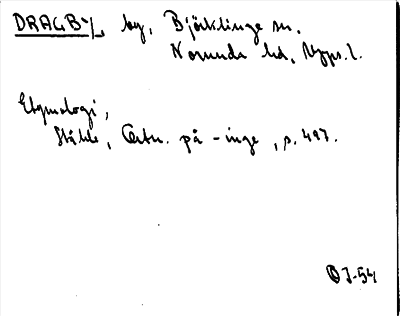 DRAGBY, by, Björklinge sn.
Norunda hd, Upps. l.
Etymologi,
Ståhle, Ortn. på -inge, s. 497.
OJ-54